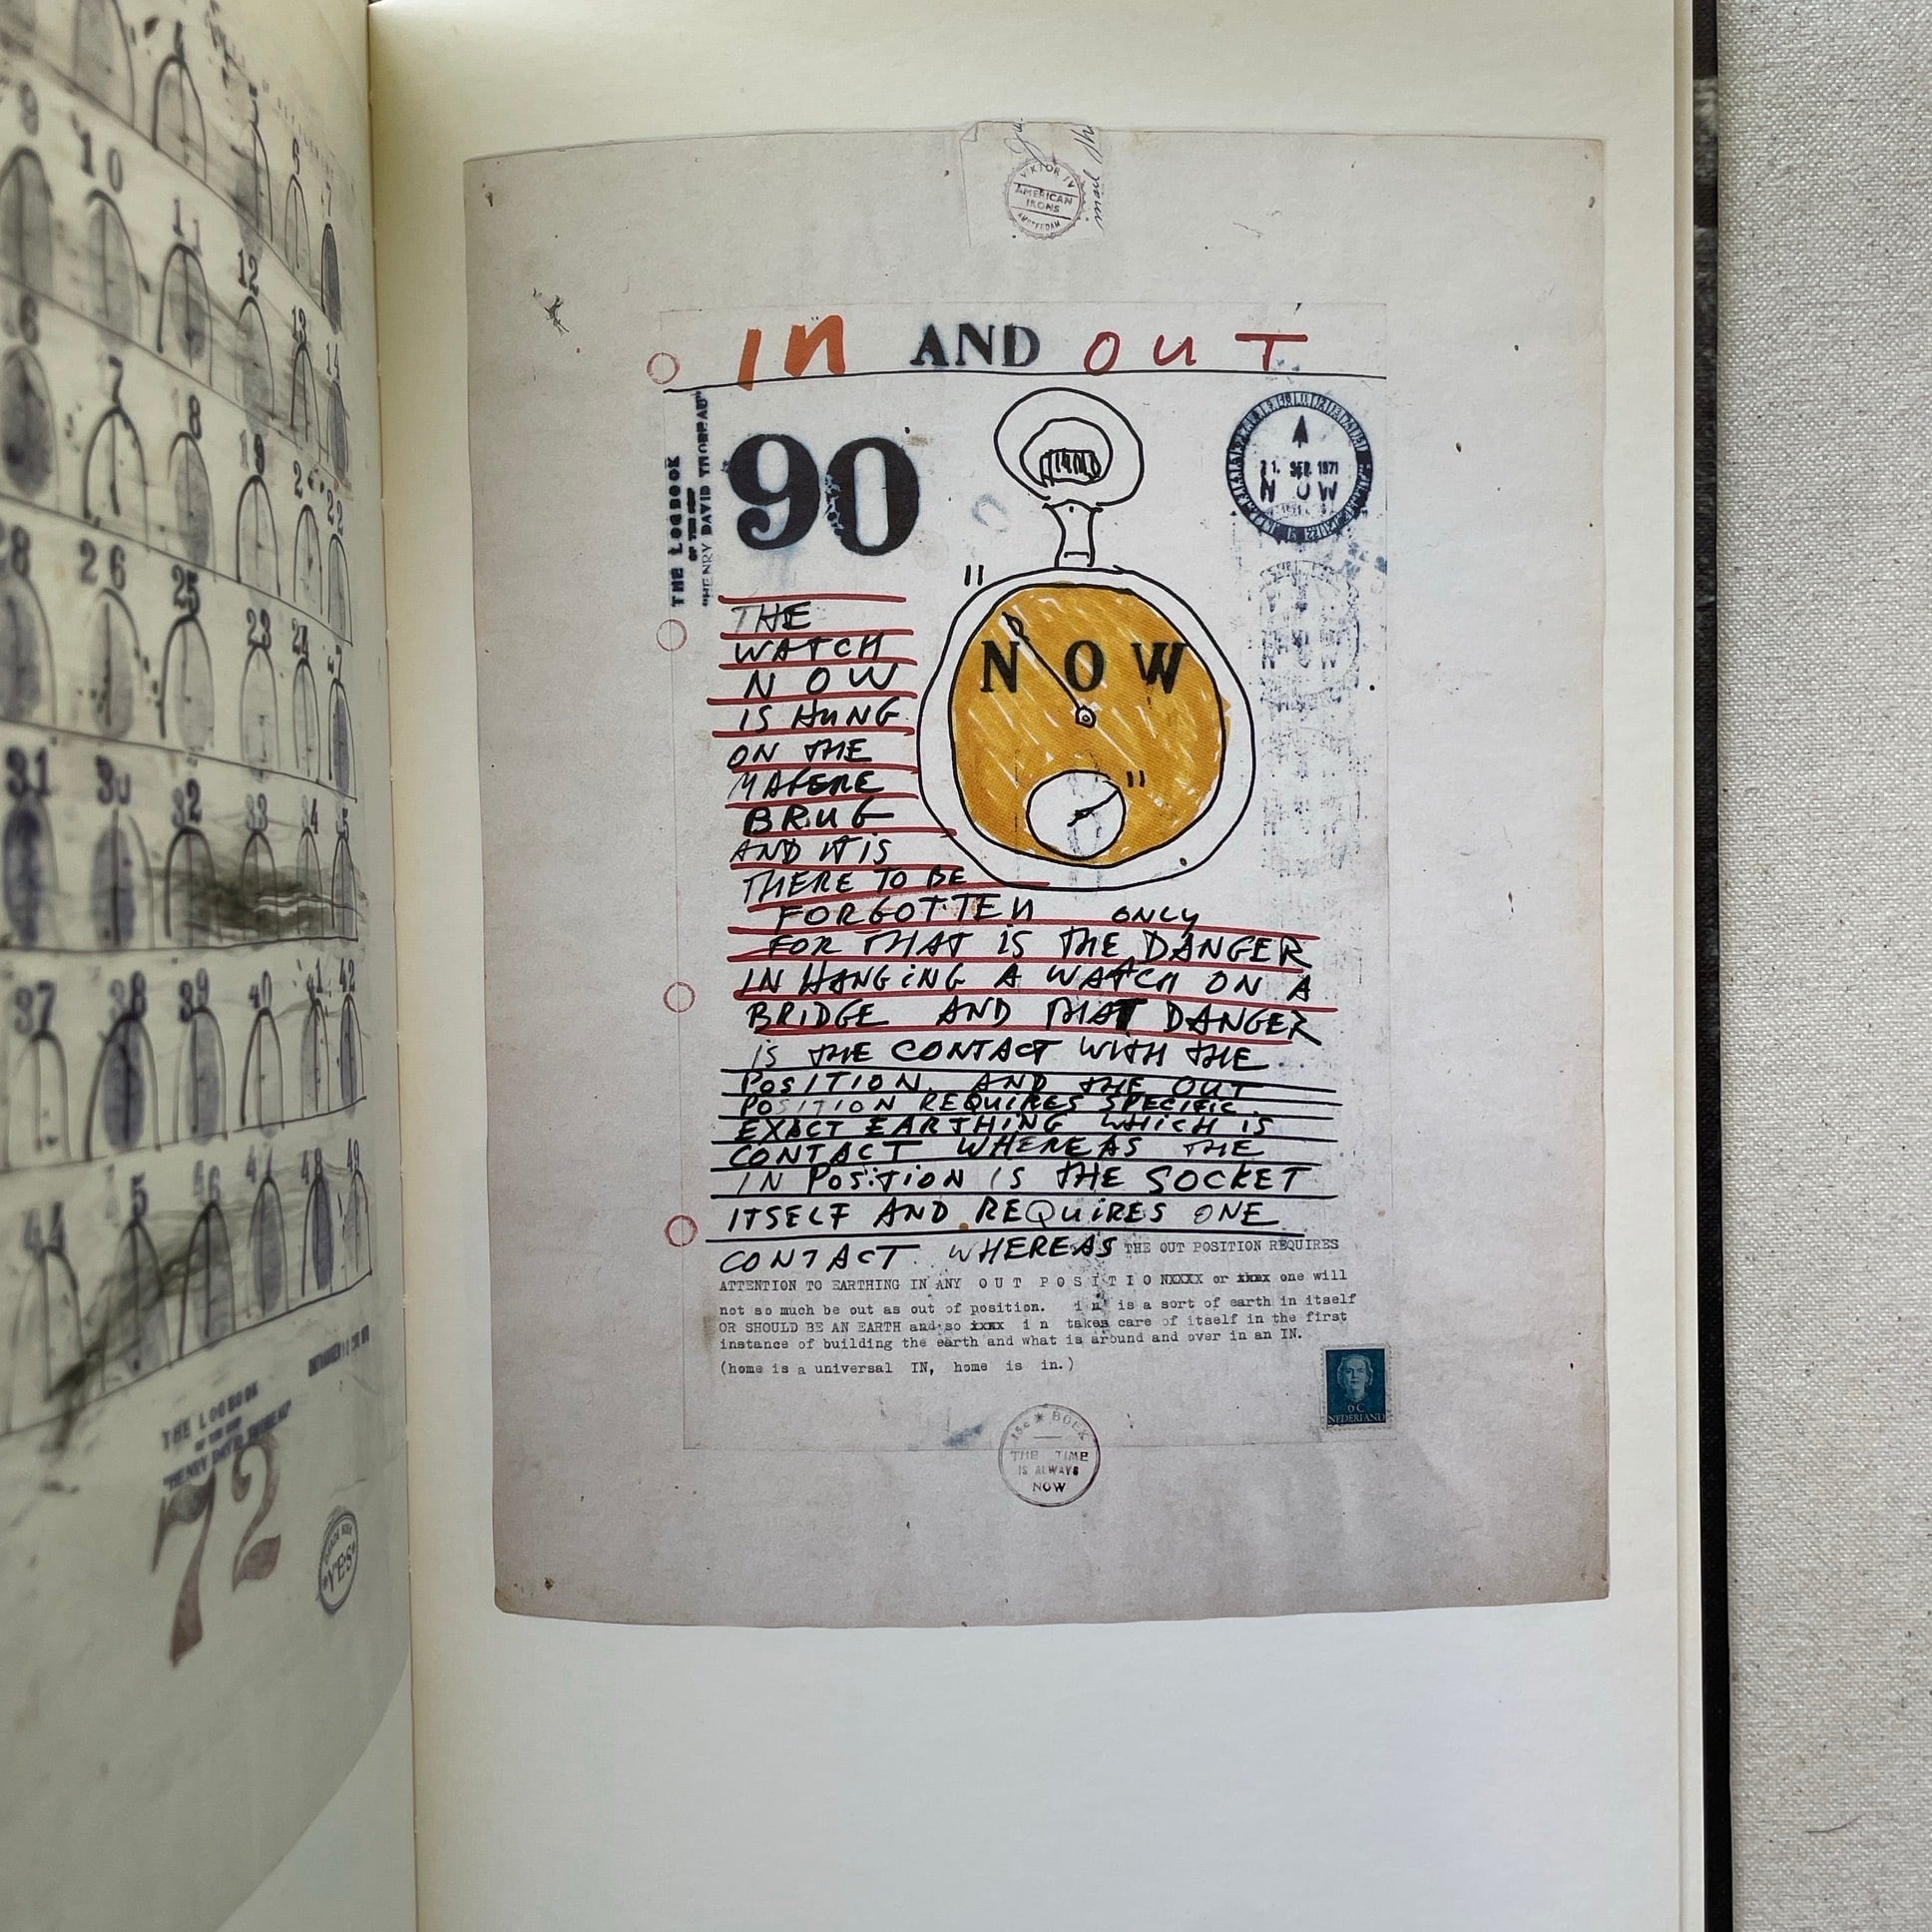 9
10
11
12
13
14
7
8
26
25
23
31
32
33
34
37
38
39
40
41
42
44
46
48
49
THE LOGBOOK
OF THE SHIP
"HENRY DAVID THOREAU"
72
YES
VIKTOR IV
AMERICAN
IKONS
AMSTERDAM
IN AND OUT
THE LOGBOOK
OF THE SHIP
"HENRY DAVID THOREAU"
90
21. SEP. 1971
NOW
N O W
THE
WATCH
NOW
IS HUNG
ON THE
MAGERE
BRUG
AND IT IS
THERE TO BE
FORGOTTEN ONLY
FOR THAT IS THE DANGER
IN HANGING A WATCH ON A
BRIDGE AND THAT DANGER
IS THE CONTACT WITH THE
POSITION. AND THE OUT
POSITION REQUIRES SPECIFIC
EXACT EARTHING WHICH IS
CONTACT WHEREAS THE
IN POSITION IS THE SOCKET
ITSELF AND REQUIRES ONE
CONTACT. WHEREAS THE OUT POSITION REQUIRES
ATTENTION TO EARTHING IN ANY O U T P O S I T I O NXXXX or xxxx one will
not so much be out as out of position. i n' is a sort of earth in itself
OR SHOULD BE AN EARTH and so xxxx i n takes care of itself in the first
instance of building the earth and what is around and over in an IN.
(home is a universal IN, home is in.)
6C
NEDERLAND
BOEK
THE TIME
IS ALWAYS
NOW